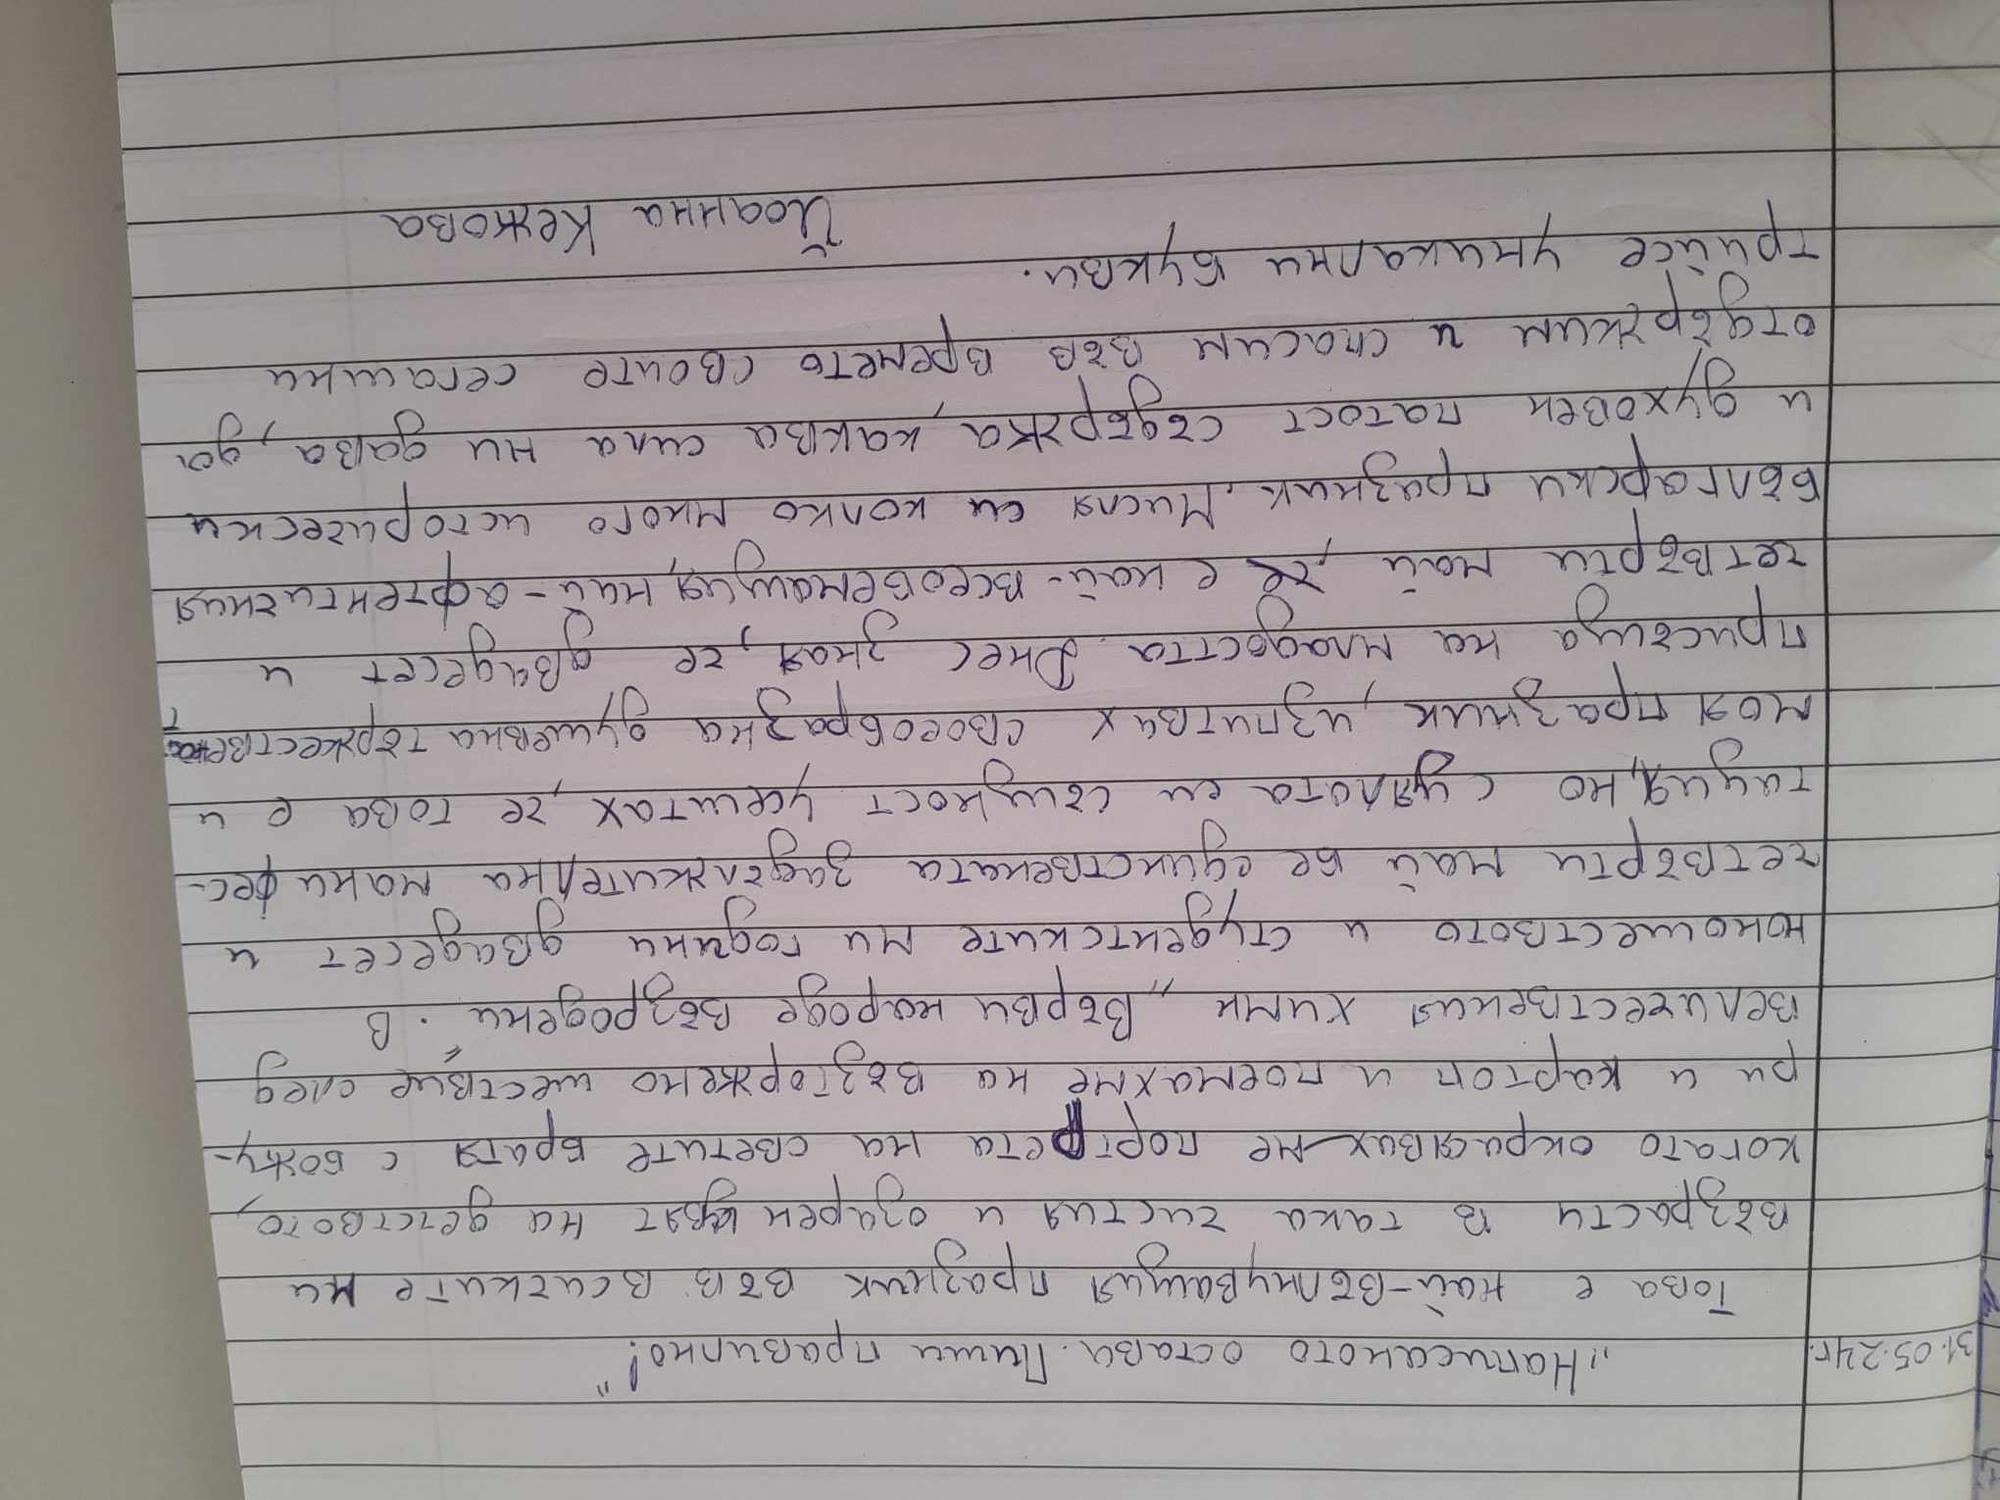 31.05.24г.
„Написаното остава. Пиши правилно!"
Това е най-вълнуващия празник във всичките ми
възрасти в така чистия и озарен свят на детството,
когато окрасявахме портрета на светите братя с божу-
ри и картон и поемахме на възторжено шествие след
величествения химн „Върви народе възродени". В
юношеството и студентските ми години двадесет и
четвърти май бе единствената задължителна мани фес-
тация, но с цялата си същност усещах, че това е и
моя празник, изпитвах своеобразна душевна тържественост
присъща на младостта. Днес зная, че двадесет и
четвърти май, че е най-всеобемащия, най-автентичния
български празник. Мисля си колко много исторически
и духовен патос съдържа, каква сила ни дава, да
отдържим и спасим във времето своите сегашни
трийсе уникални букви.
Йоанна Кежова